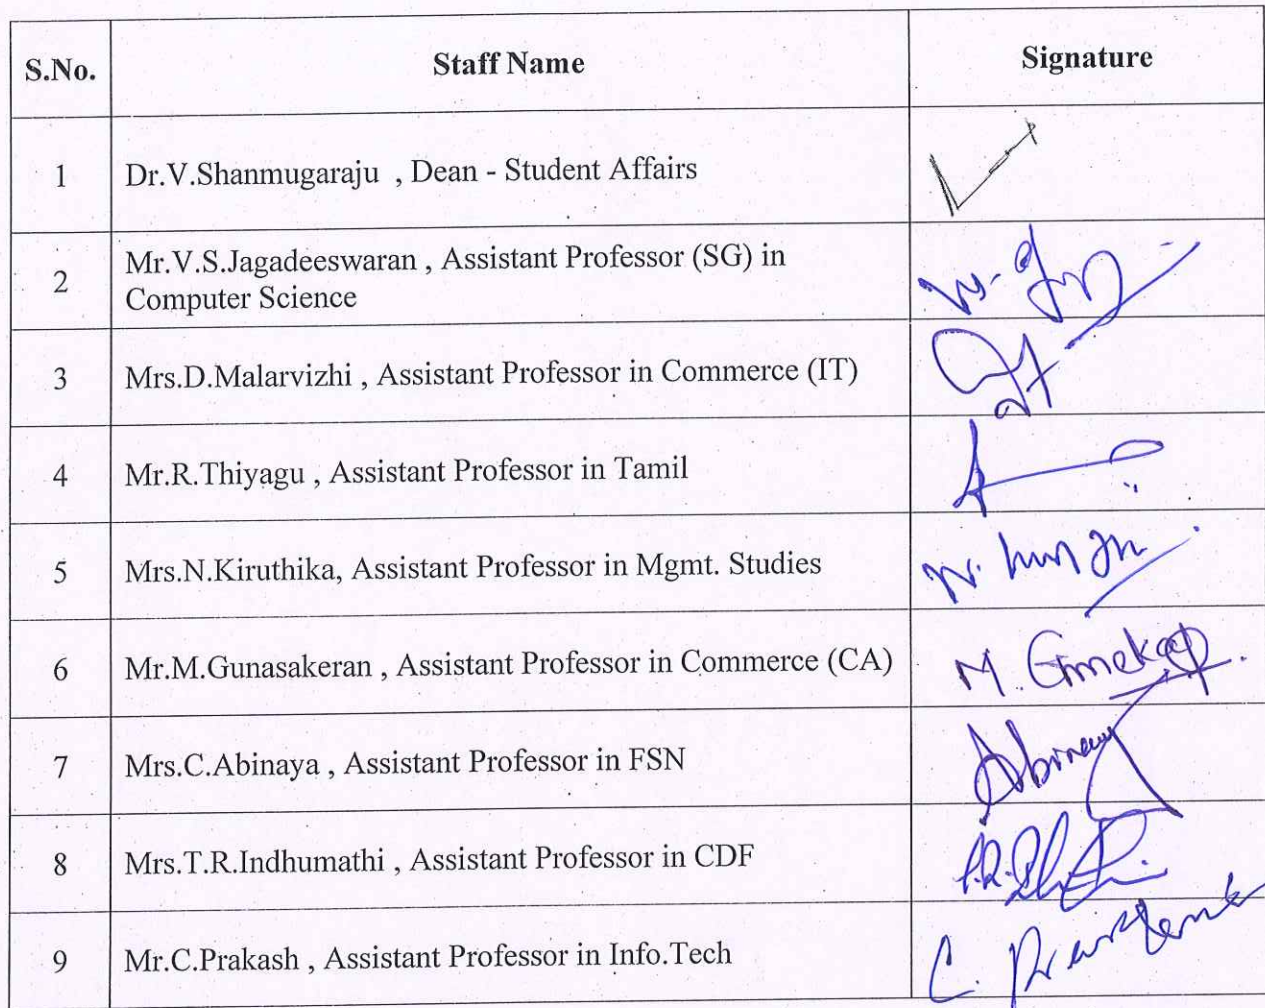 S.No. Staff Name Signature
1 Dr.V.Shanmugaraju , Dean - Student Affairs
2 Mr.V.S.Jagadeeswaran , Assistant Professor (SG) in
Computer Science
3 Mrs.D.Malarvizhi , Assistant Professor in Commerce (IT)
4 Mr.R.Thiyagu , Assistant Professor in Tamil
5 Mrs.N.Kiruthika, Assistant Professor in Mgmt. Studies
6 Mr.M.Gunasakeran , Assistant Professor in Commerce (CA)
7 Mrs.C.Abinaya , Assistant Professor in FSN
8 Mrs.T.R.Indhumathi , Assistant Professor in CDF
9 Mr.C.Prakash , Assistant Professor in Info.Tech